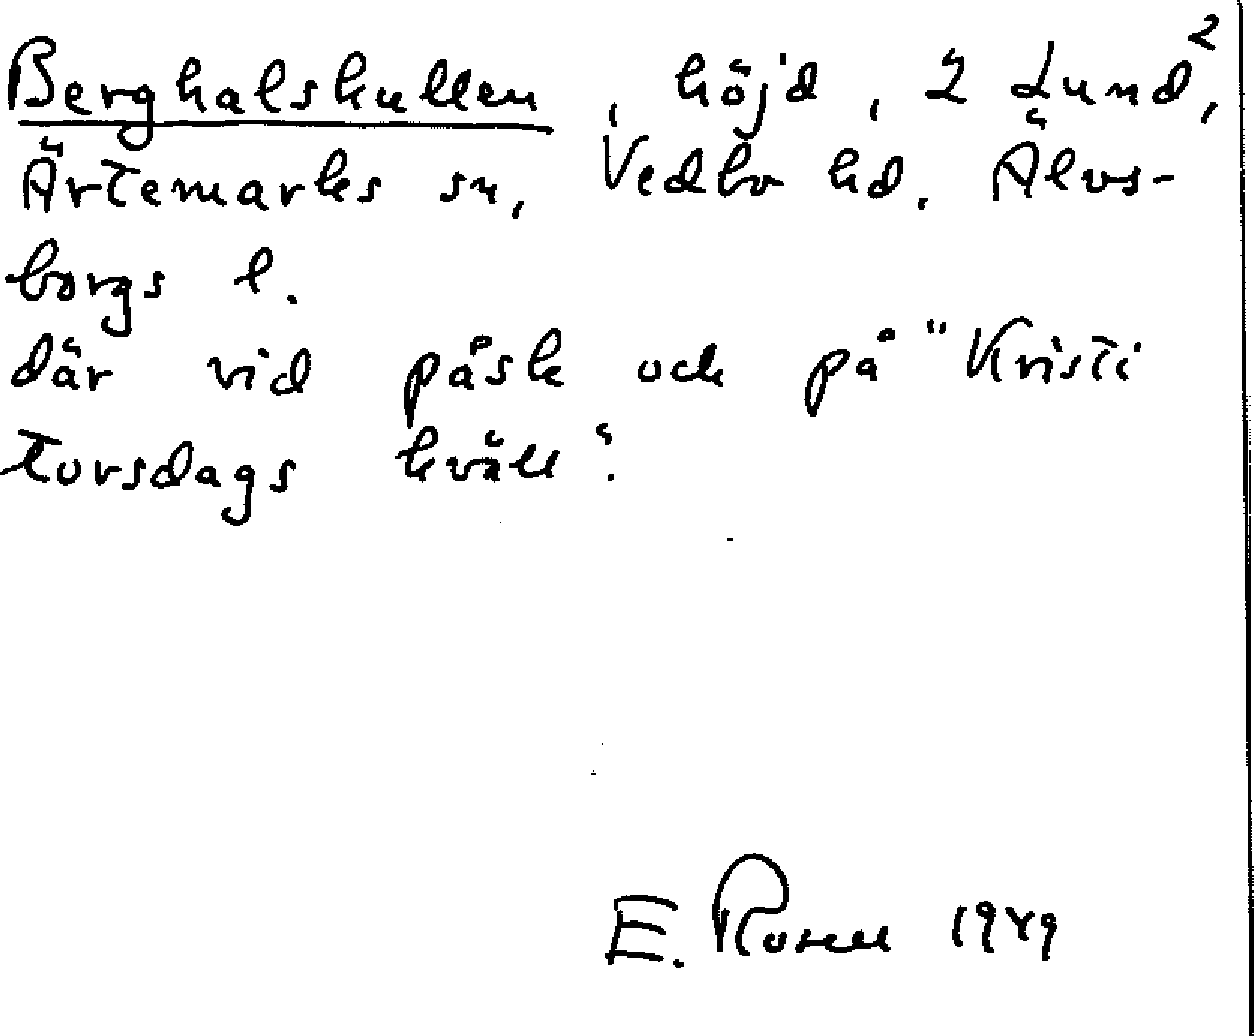 Berghalskullen, höjd, 2 Lund²,
Ärtemarks sn, Vedbo hd. Älvs-
borgs l.
där vid påsk och på "Kristi
Torsdags kväll".
E. Rosen 1949